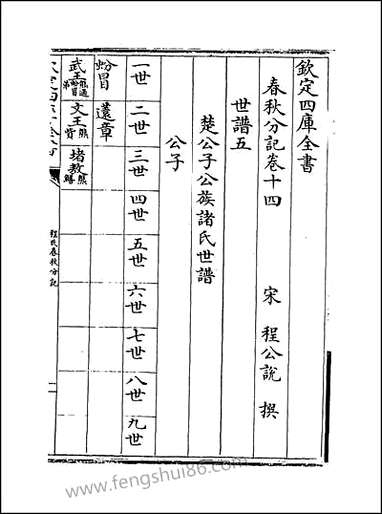 欽定四庫全書
春秋分記卷十四
宋 程公說 撰
世譜五
楚公子公族諸氏世譜
公子
一世 二世 三世 四世 五世 六世 七世 八世 九世
蚡冒 薳章
武王 熊通 蚡冒弟 文王 熊貲 堵敖 熊囏
程氏春秋分記
www.fengshui86.com